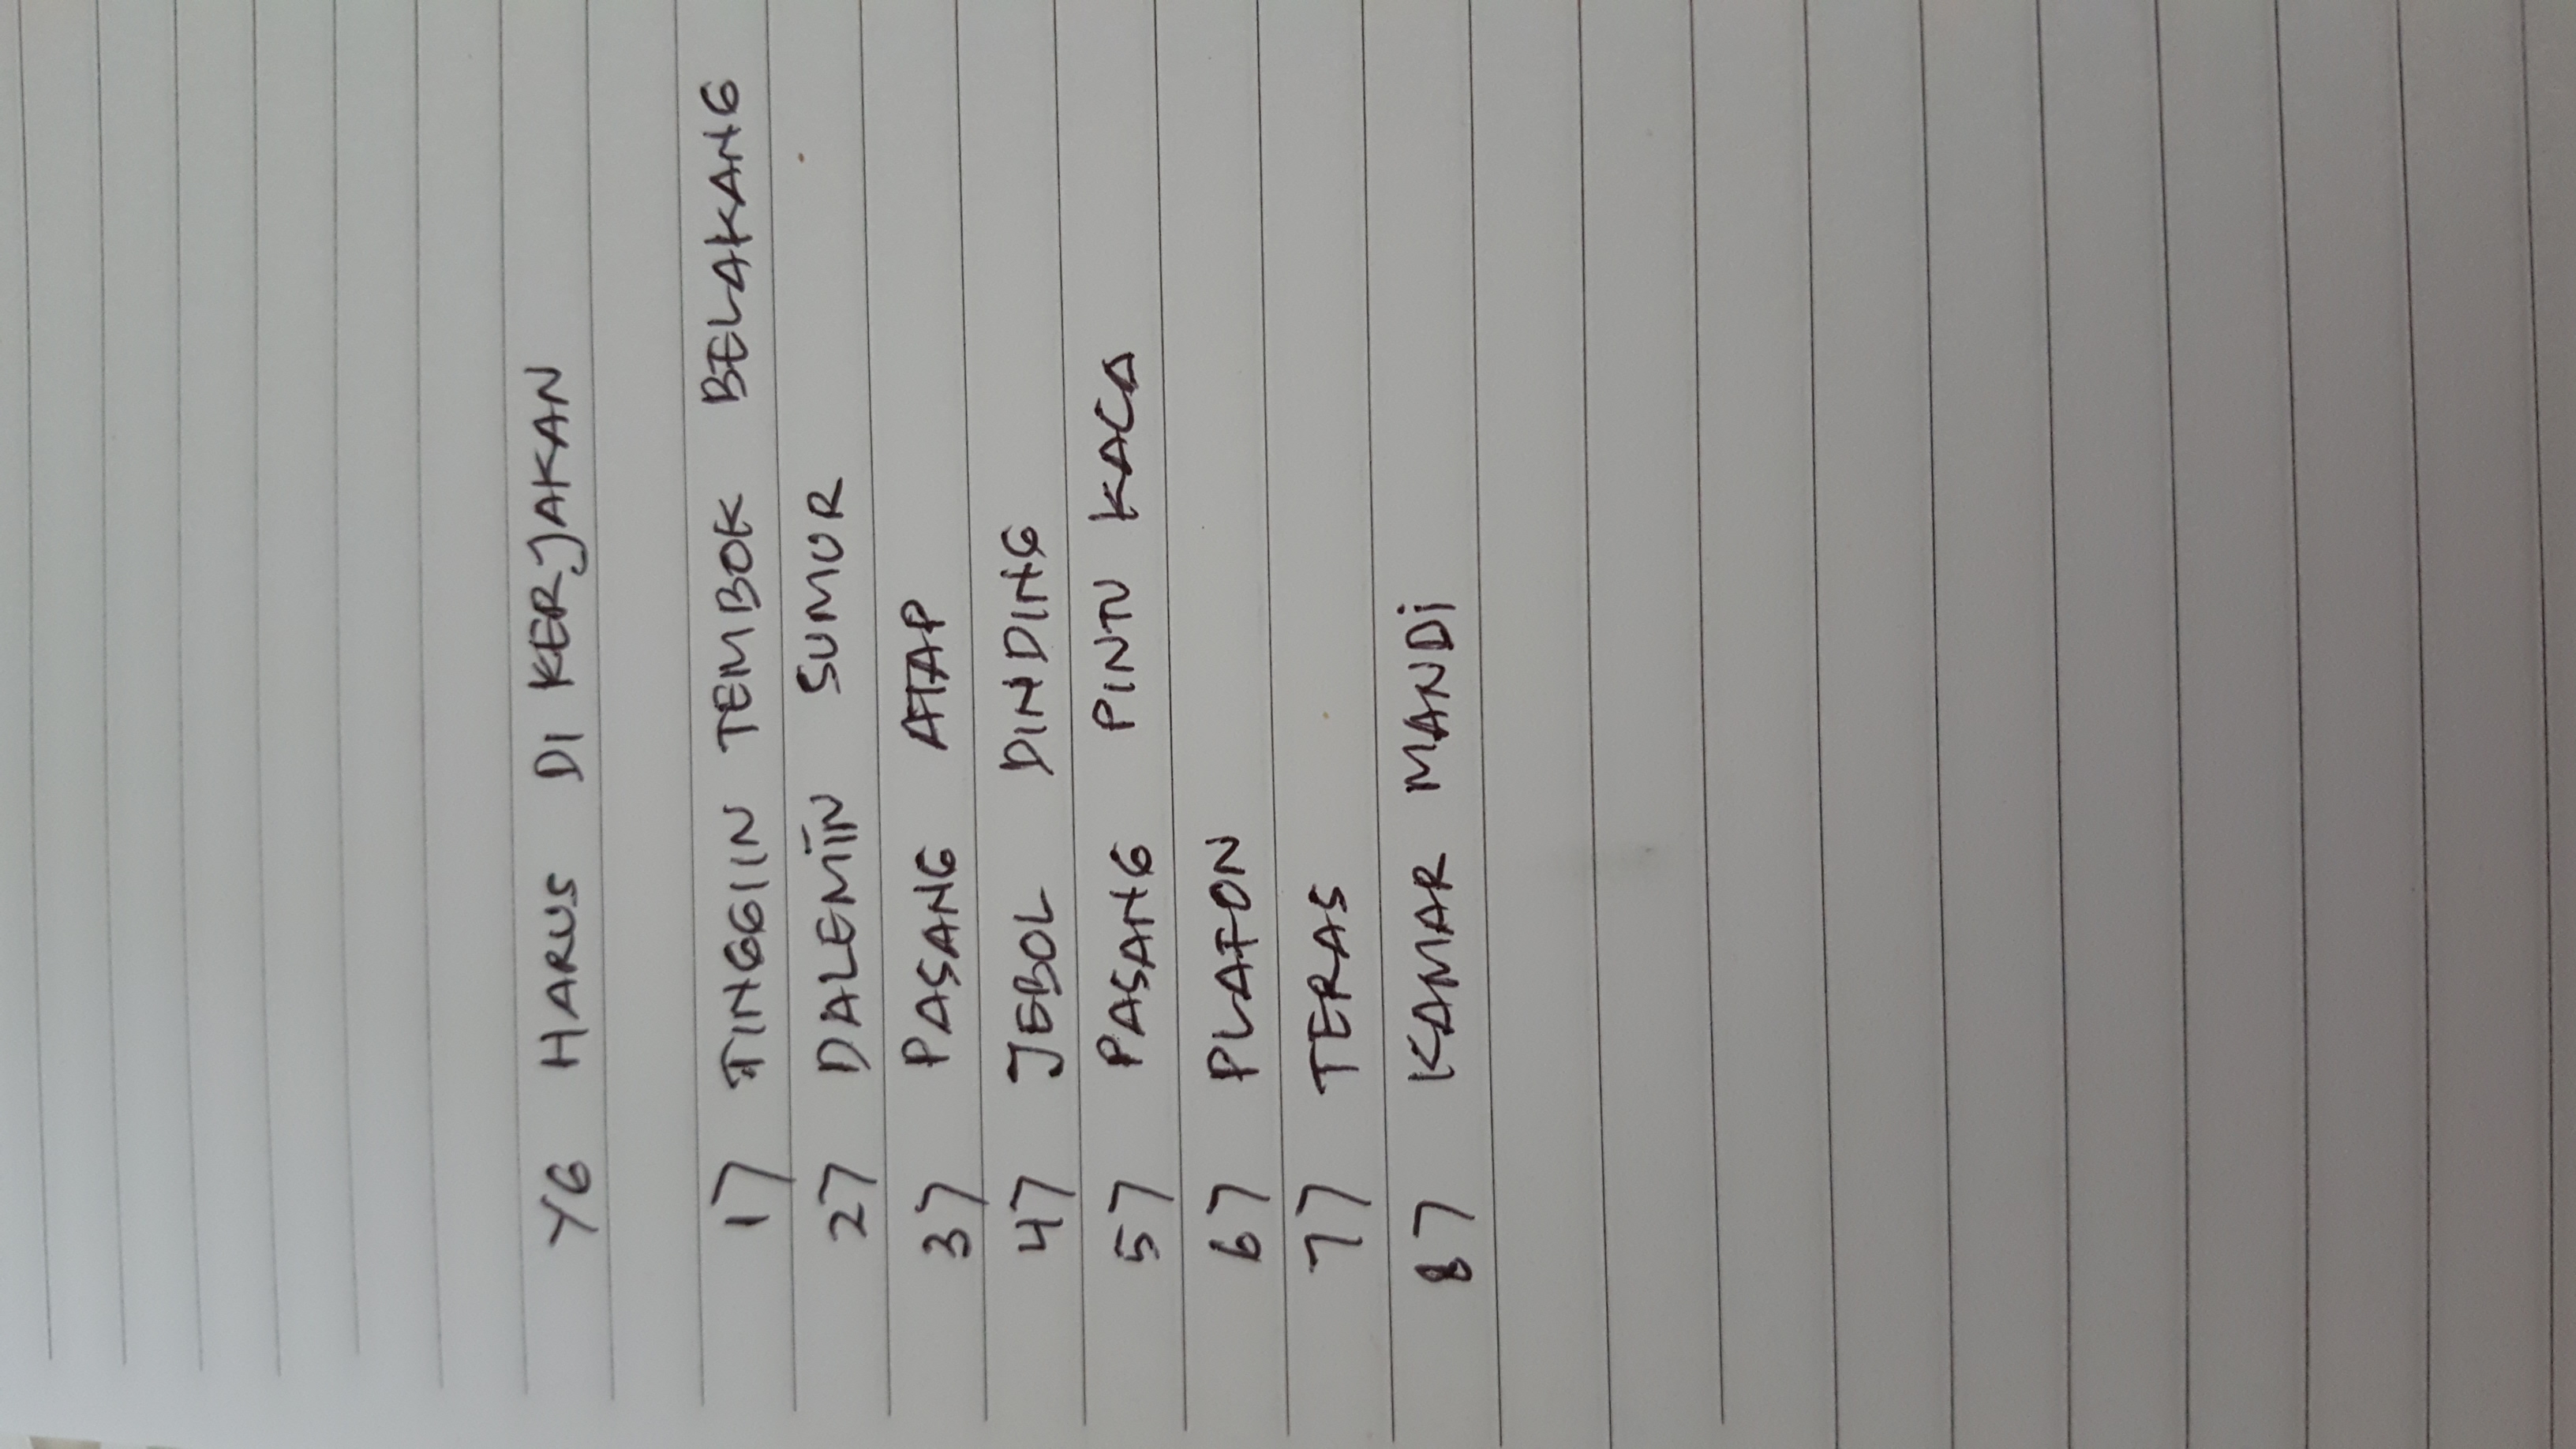 YG HARUS DI KERJAKAN
1) TINGGIIN TEMBOK BELAKANG
2) DALEMIN SUMUR
3) PASANG ATAP
4) JEBOL DINDING
5) PASANG PINTU KACA
6) PLAFON
7) TERAS
8) KAMAR MANDi